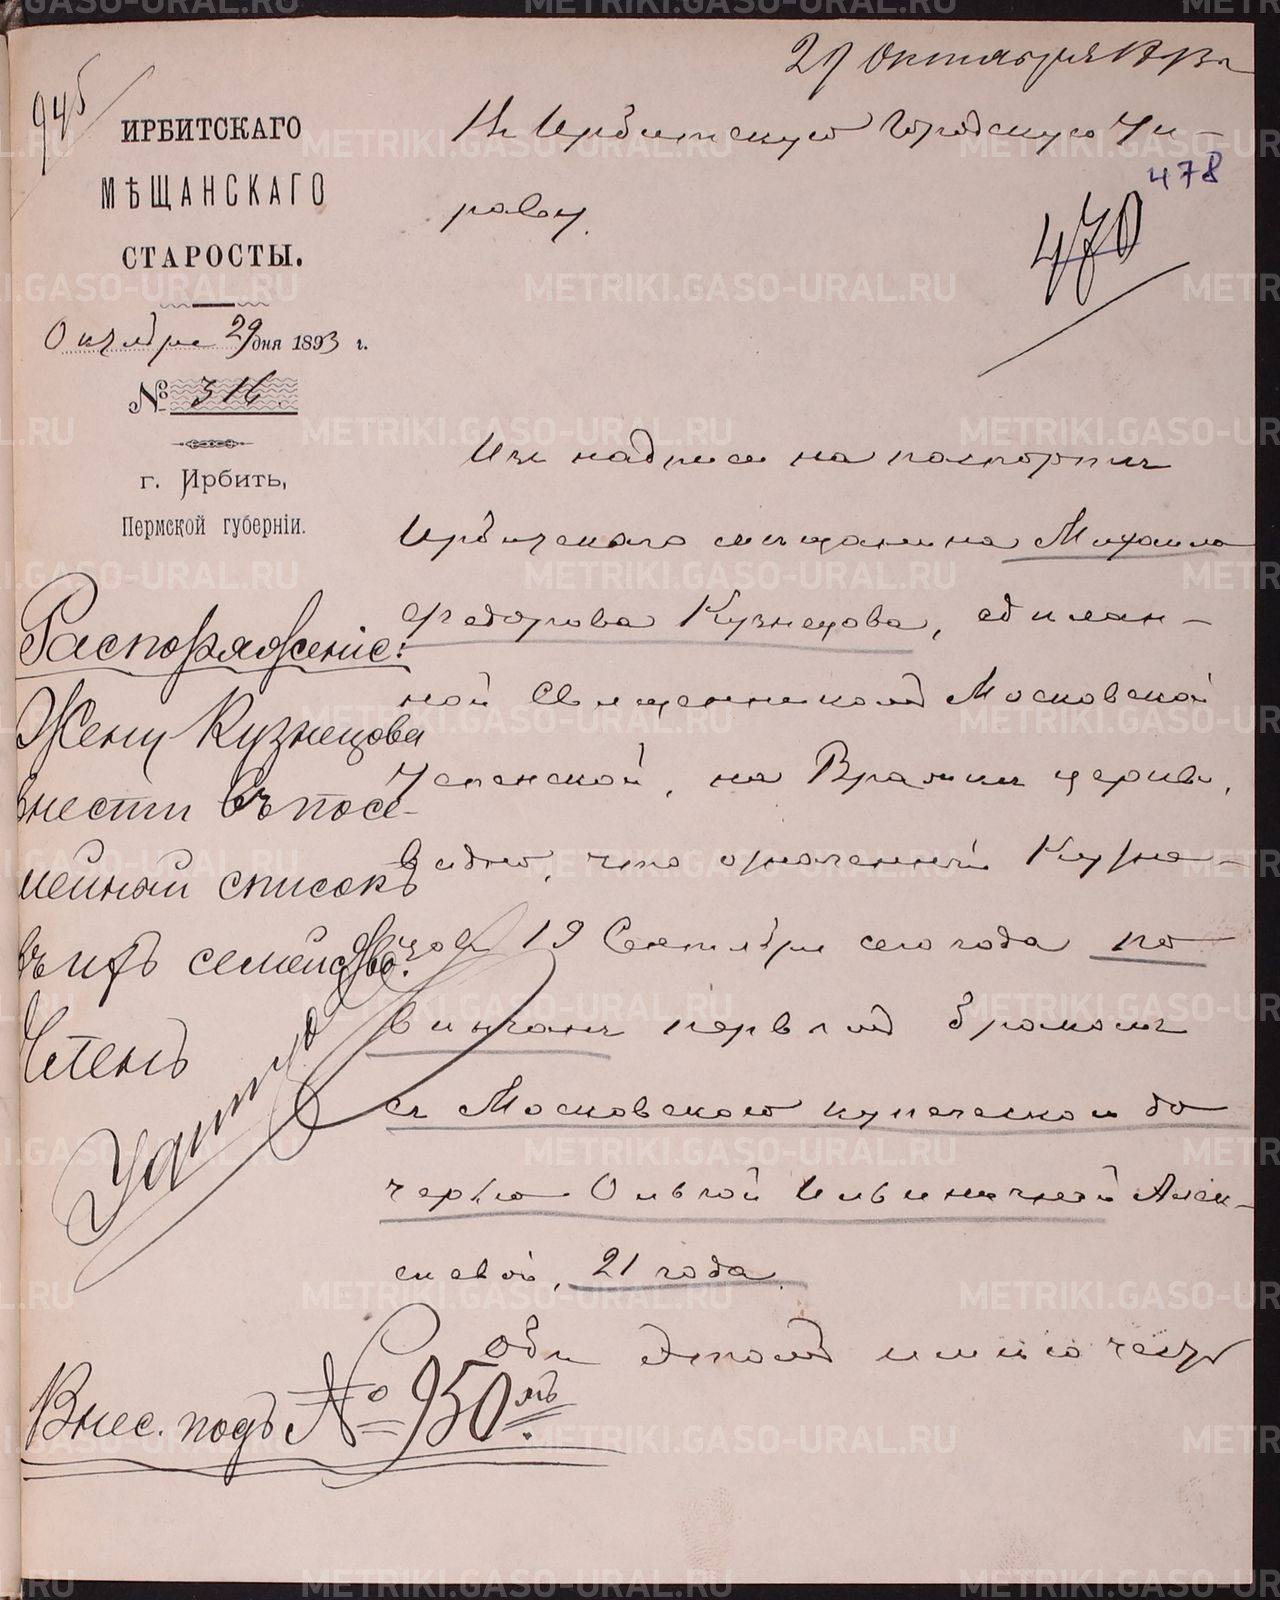 29 Октября 1893 г
945
ИРБИТСКАГО
МѢЩАНСКАГО
СТАРОСТЫ.
Октября 29 дня 1893 г.
№ 316.
г. Ирбить,
Пермской губерніи.
Въ Ирбитскую Городскую Уп-
раву.
478
470
Изъ надписи на паспортѣ
Ирбитскаго мѣщанина Михаила
Федорова Кузнецова, сдѣлан-
ной Священникомъ Московской
Успенской, на Вражкѣ церкви,
видно, что означенный Кузне-
цовъ 19 Сентября сего года по
вѣнчанъ первымъ бракомъ
съ Московскою купеческою до
черью Ольгой Ильиничной Алек-
сѣевой, 21 года.
Объ этомъ имѣю честь
Распоряженіе:
Жену Кузнецова
внести въ посе-
мейный списокъ
въ ихъ семейство.
Членъ
Внес. подъ № 950 мъ
METRIKI.GASO-URAL.RU